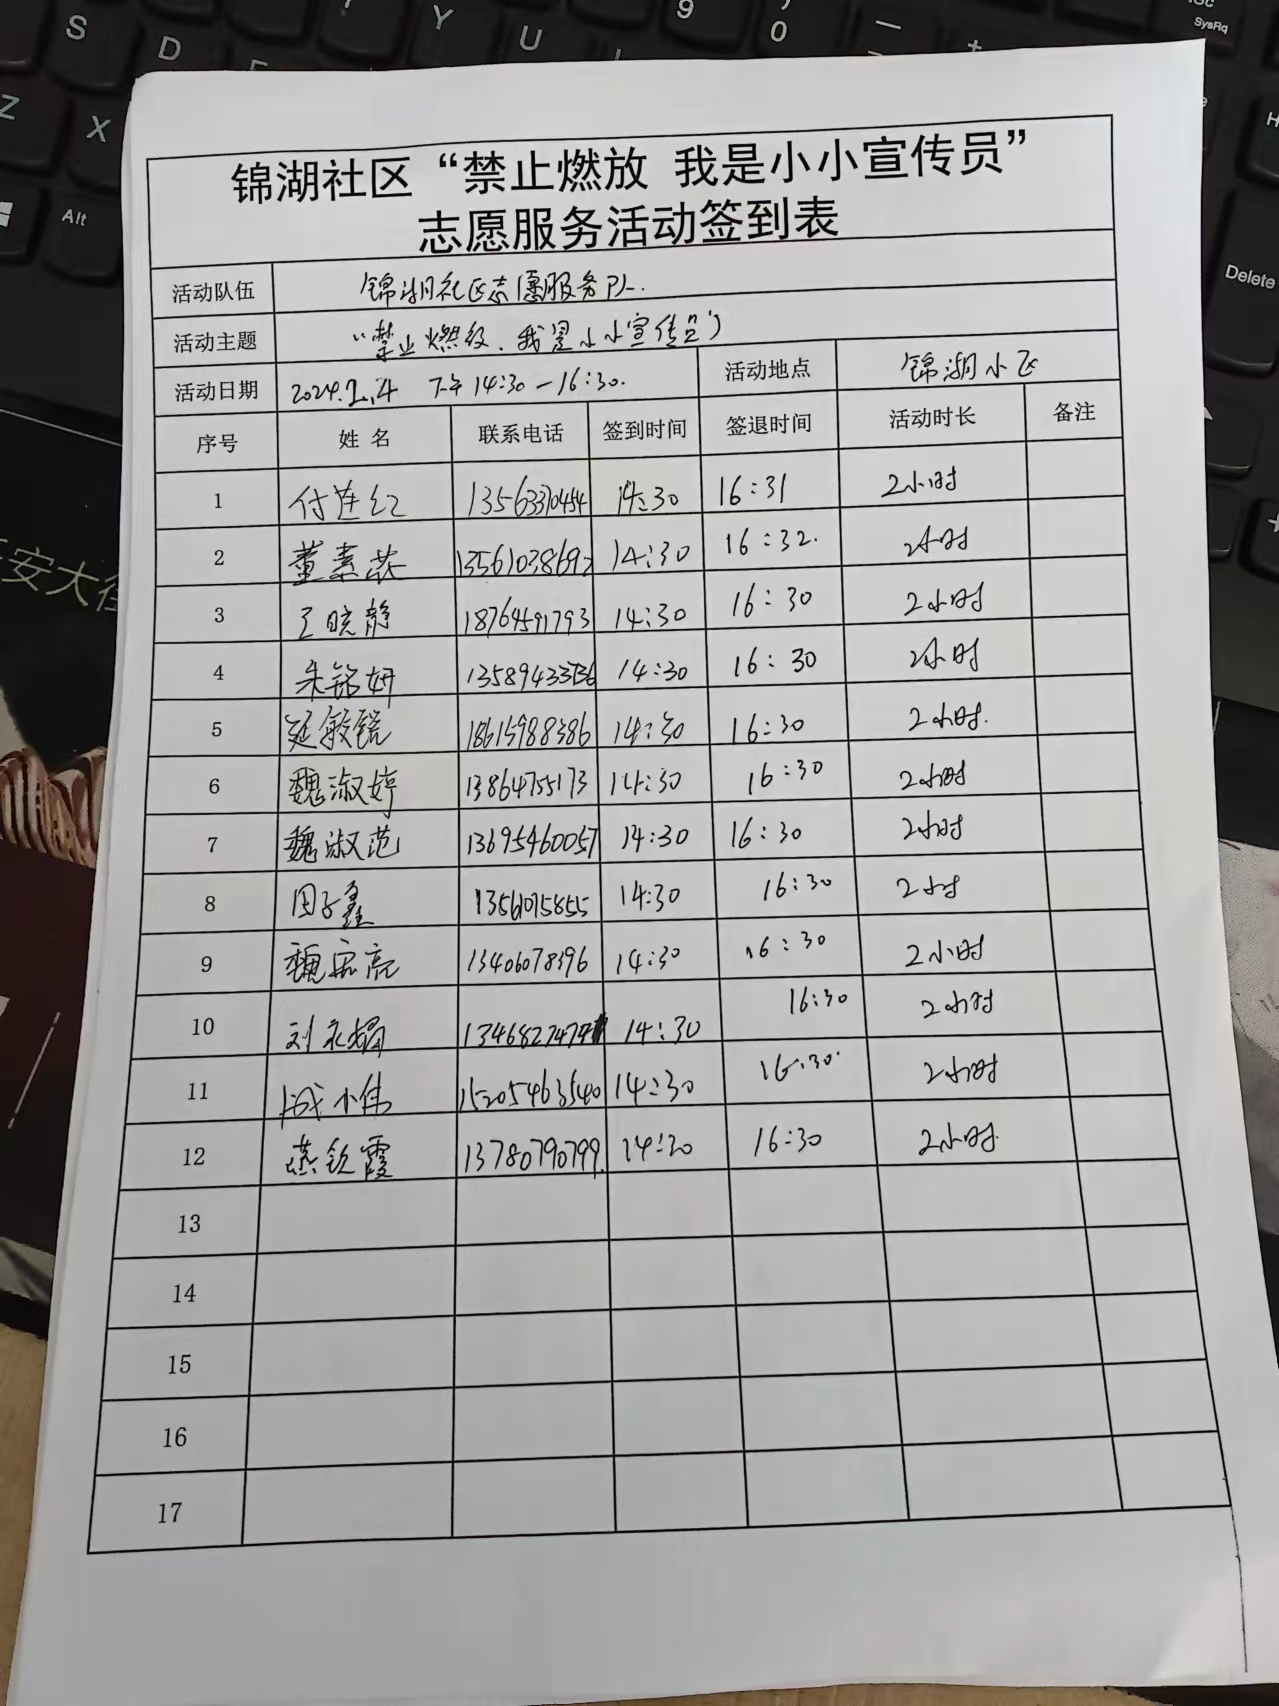 锦湖社区“禁止燃放 我是小小宣传员”
志愿服务活动签到表
活动队伍 锦湖社区志愿服务队.
活动主题 “禁止燃放、我是小小宣传员”
活动日期 2024.2.4 下午14:30-16:30. 活动地点 锦湖小区
序号 姓名 联系电话 签到时间 签退时间 活动时长 备注
1 付连红 13563370454 14:30 16:31 2小时
2 董素 14:30 16:32. 2小时
3 王晓静 18764591793 14:30 16:30 2小时
4 朱铭妍 14:30 16:30 2小时
5 延敏锐 18615988386 14:30 16:30 2小时.
6 魏淑婷 13864755173 14:30 16:30 2小时
7 魏淑范 13695460057 14:30 16:30 2小时
8 田子鑫 13561015855 14:30 16:30 2小时
9 魏宗亮 13406078396 14:30 16:30 2小时
10 刘永娟 14:30 16:30 2小时
11 战小伟 15205463540 14:30 16:30. 2小时
12 燕钦霞 13780790799. 14:30 16:30 2小时.
13
14
15
16
17
安大街
S
D
Y
U
9
0
SysRq
Z
X
Alt
Delete